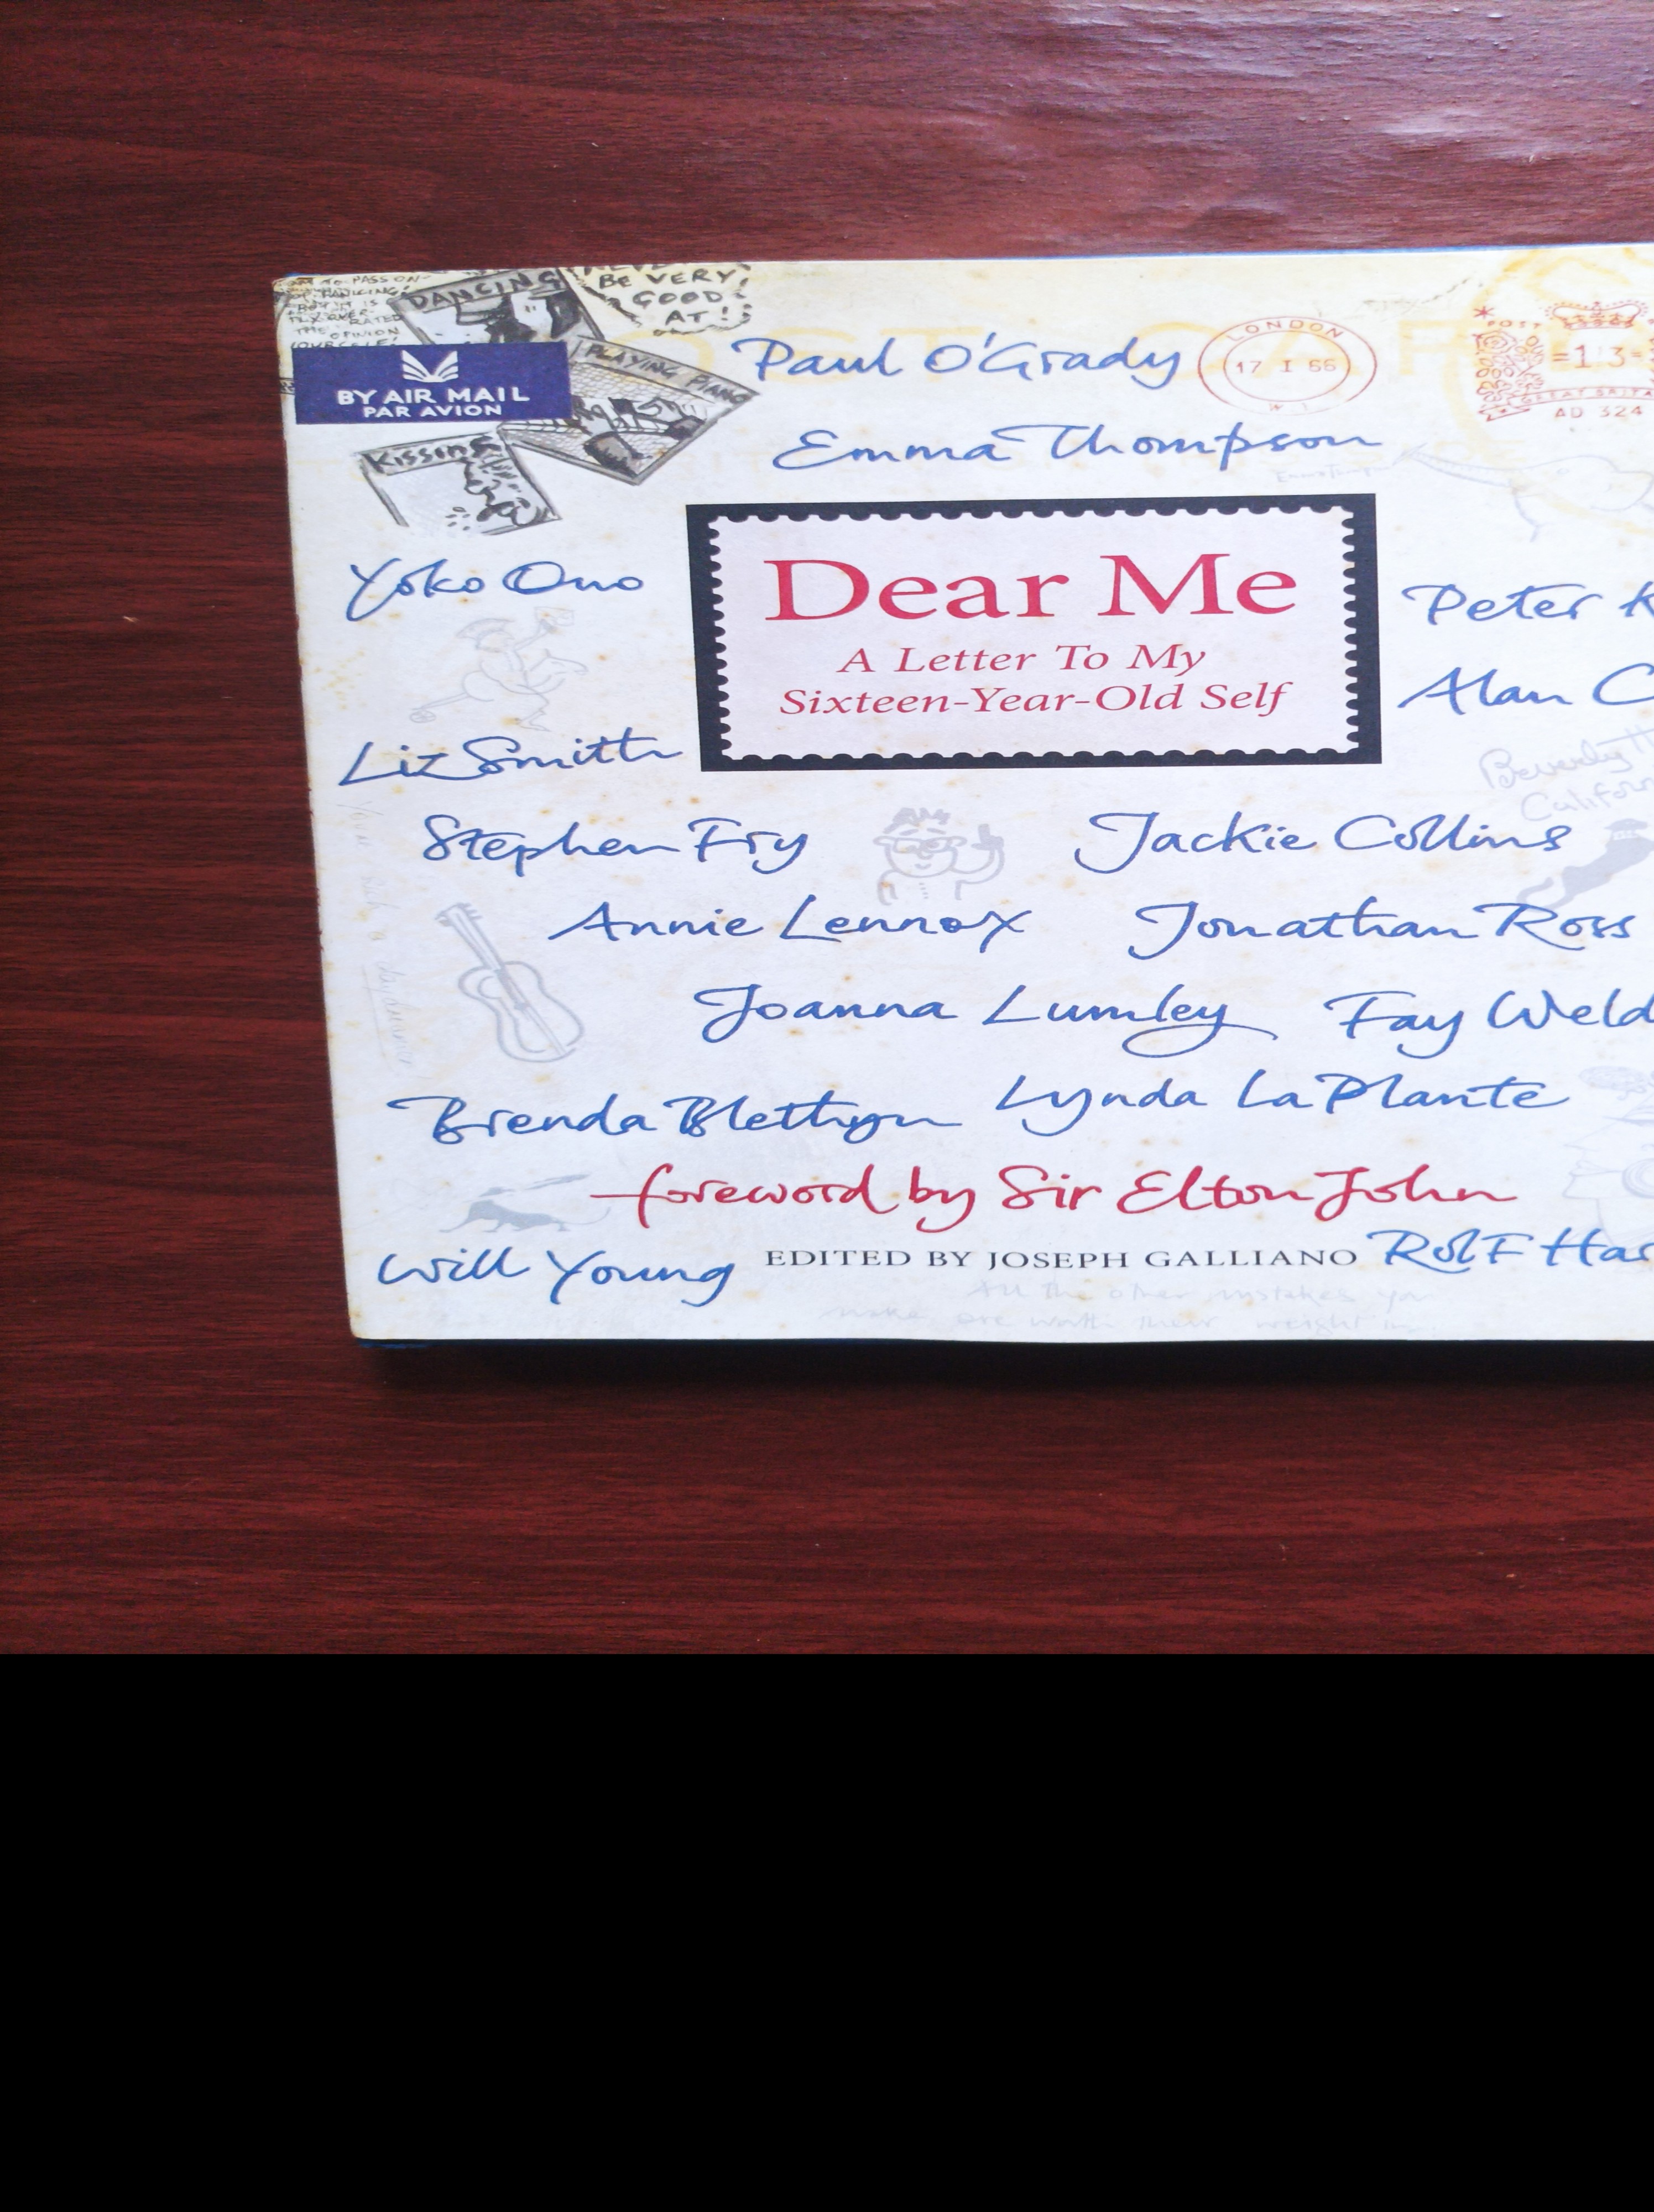 TO PASS ON
PANICKING!
IT IS
OVER-RATED
THE OPINION
DANCING
BE VERY
GOOD
AT!
PLAYING PIANO
KISSING
BY AIR MAIL
PAR AVION
Paul O'Grady
LONDON
17 I 66
W.1.
POST
=1'3=
GREAT BRITA
AD 324
Emma Thompson
Yoko Ono
Dear Me
A Letter To My
Sixteen-Year-Old Self
Peter K
Alan C
Liz Smith
Beverly H
Californ
Stephen Fry
Jackie Collins
Annie Lennox
Jonathan Ross
Joanna Lumley
Fay Weld
Brenda Blethyn
Lynda La Plante
foreword by Sir Elton John
Will Young
EDITED BY JOSEPH GALLIANO
Rolf Har
All the other mistakes you
make are worth their weight in